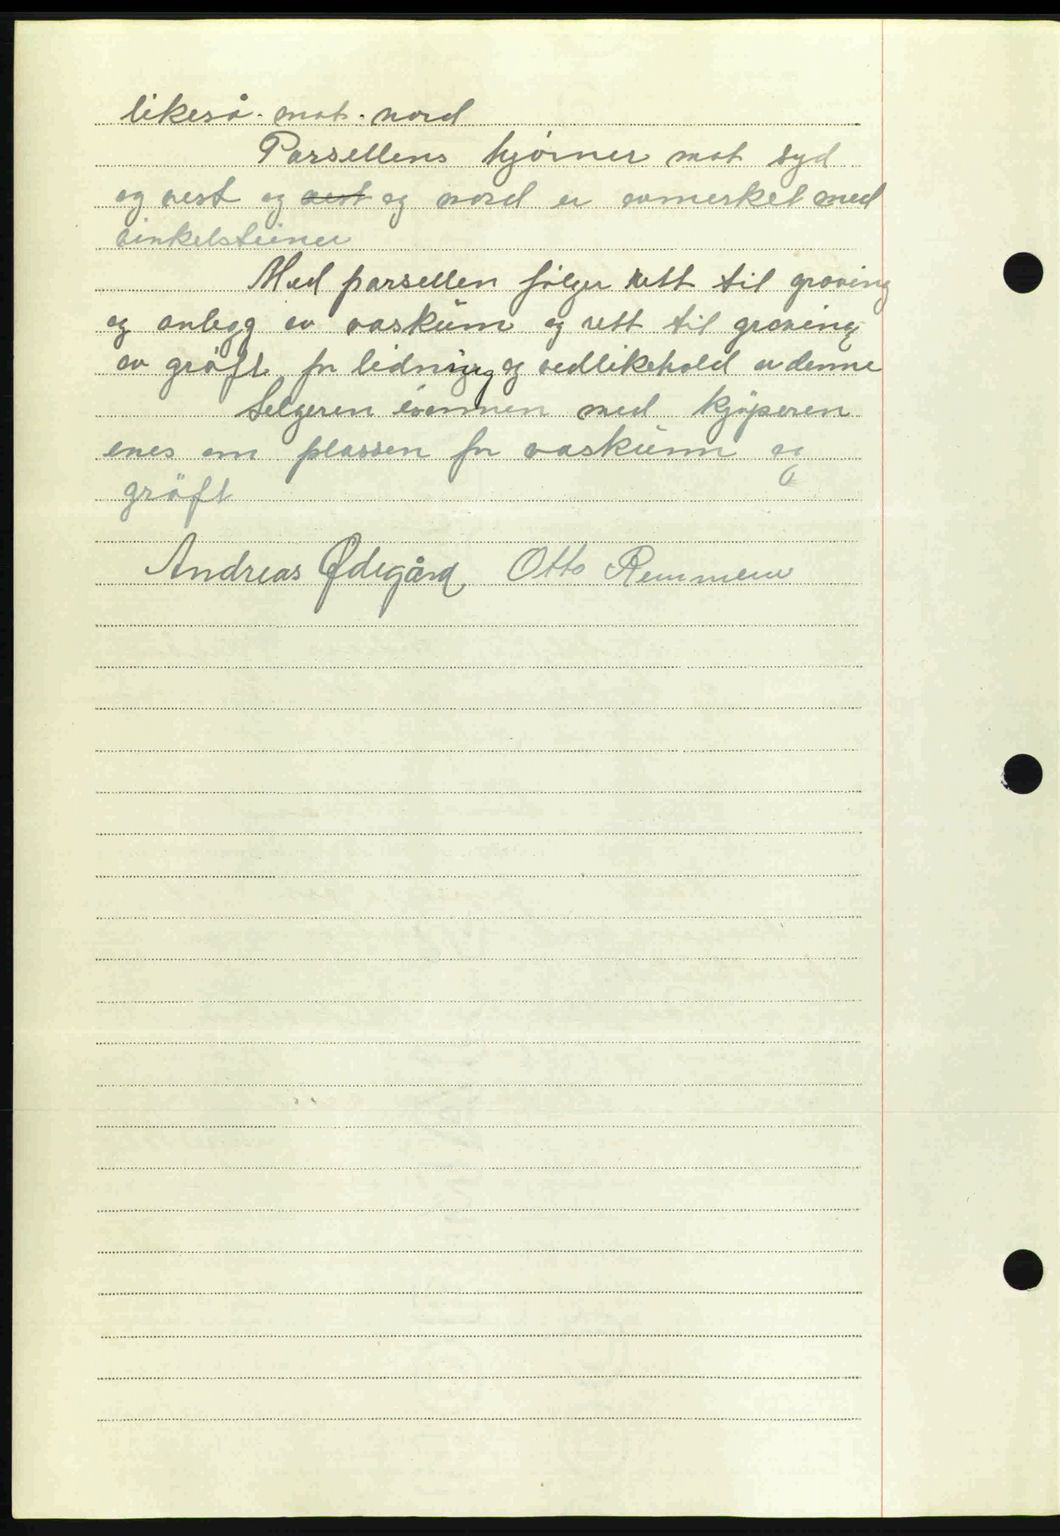 likeså mot nord
Parsellens hjørner mot syd
og vest og vest og nord er avmerket med
vinkelsteiner
Med parsellen følger rett til graving
og anlegg av vaskum og rett til graving
av grøft for lidning og vedlikehold av denne
Selgeren sammen med kjøperen
enes om plassen for vaskum og
grøft
Andreas Ødegård Otto Remmem